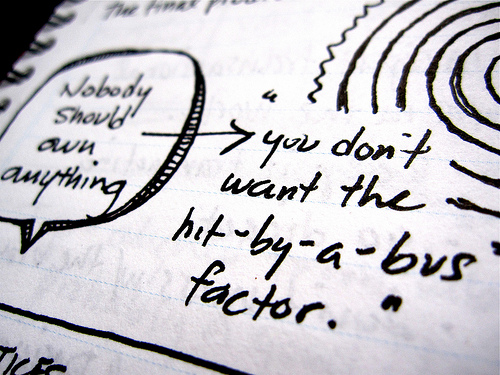 The final
Nobody
should
own
anything
"you don't
want the
hit-by-a-bus
factor."
TICES